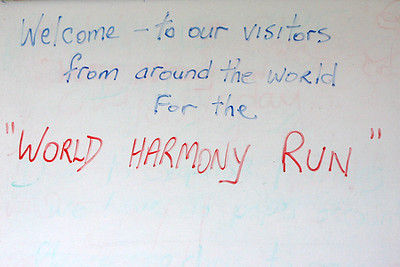 Welcome – to our visitors
from around the world
For the
"WORLD HARMONY RUN"